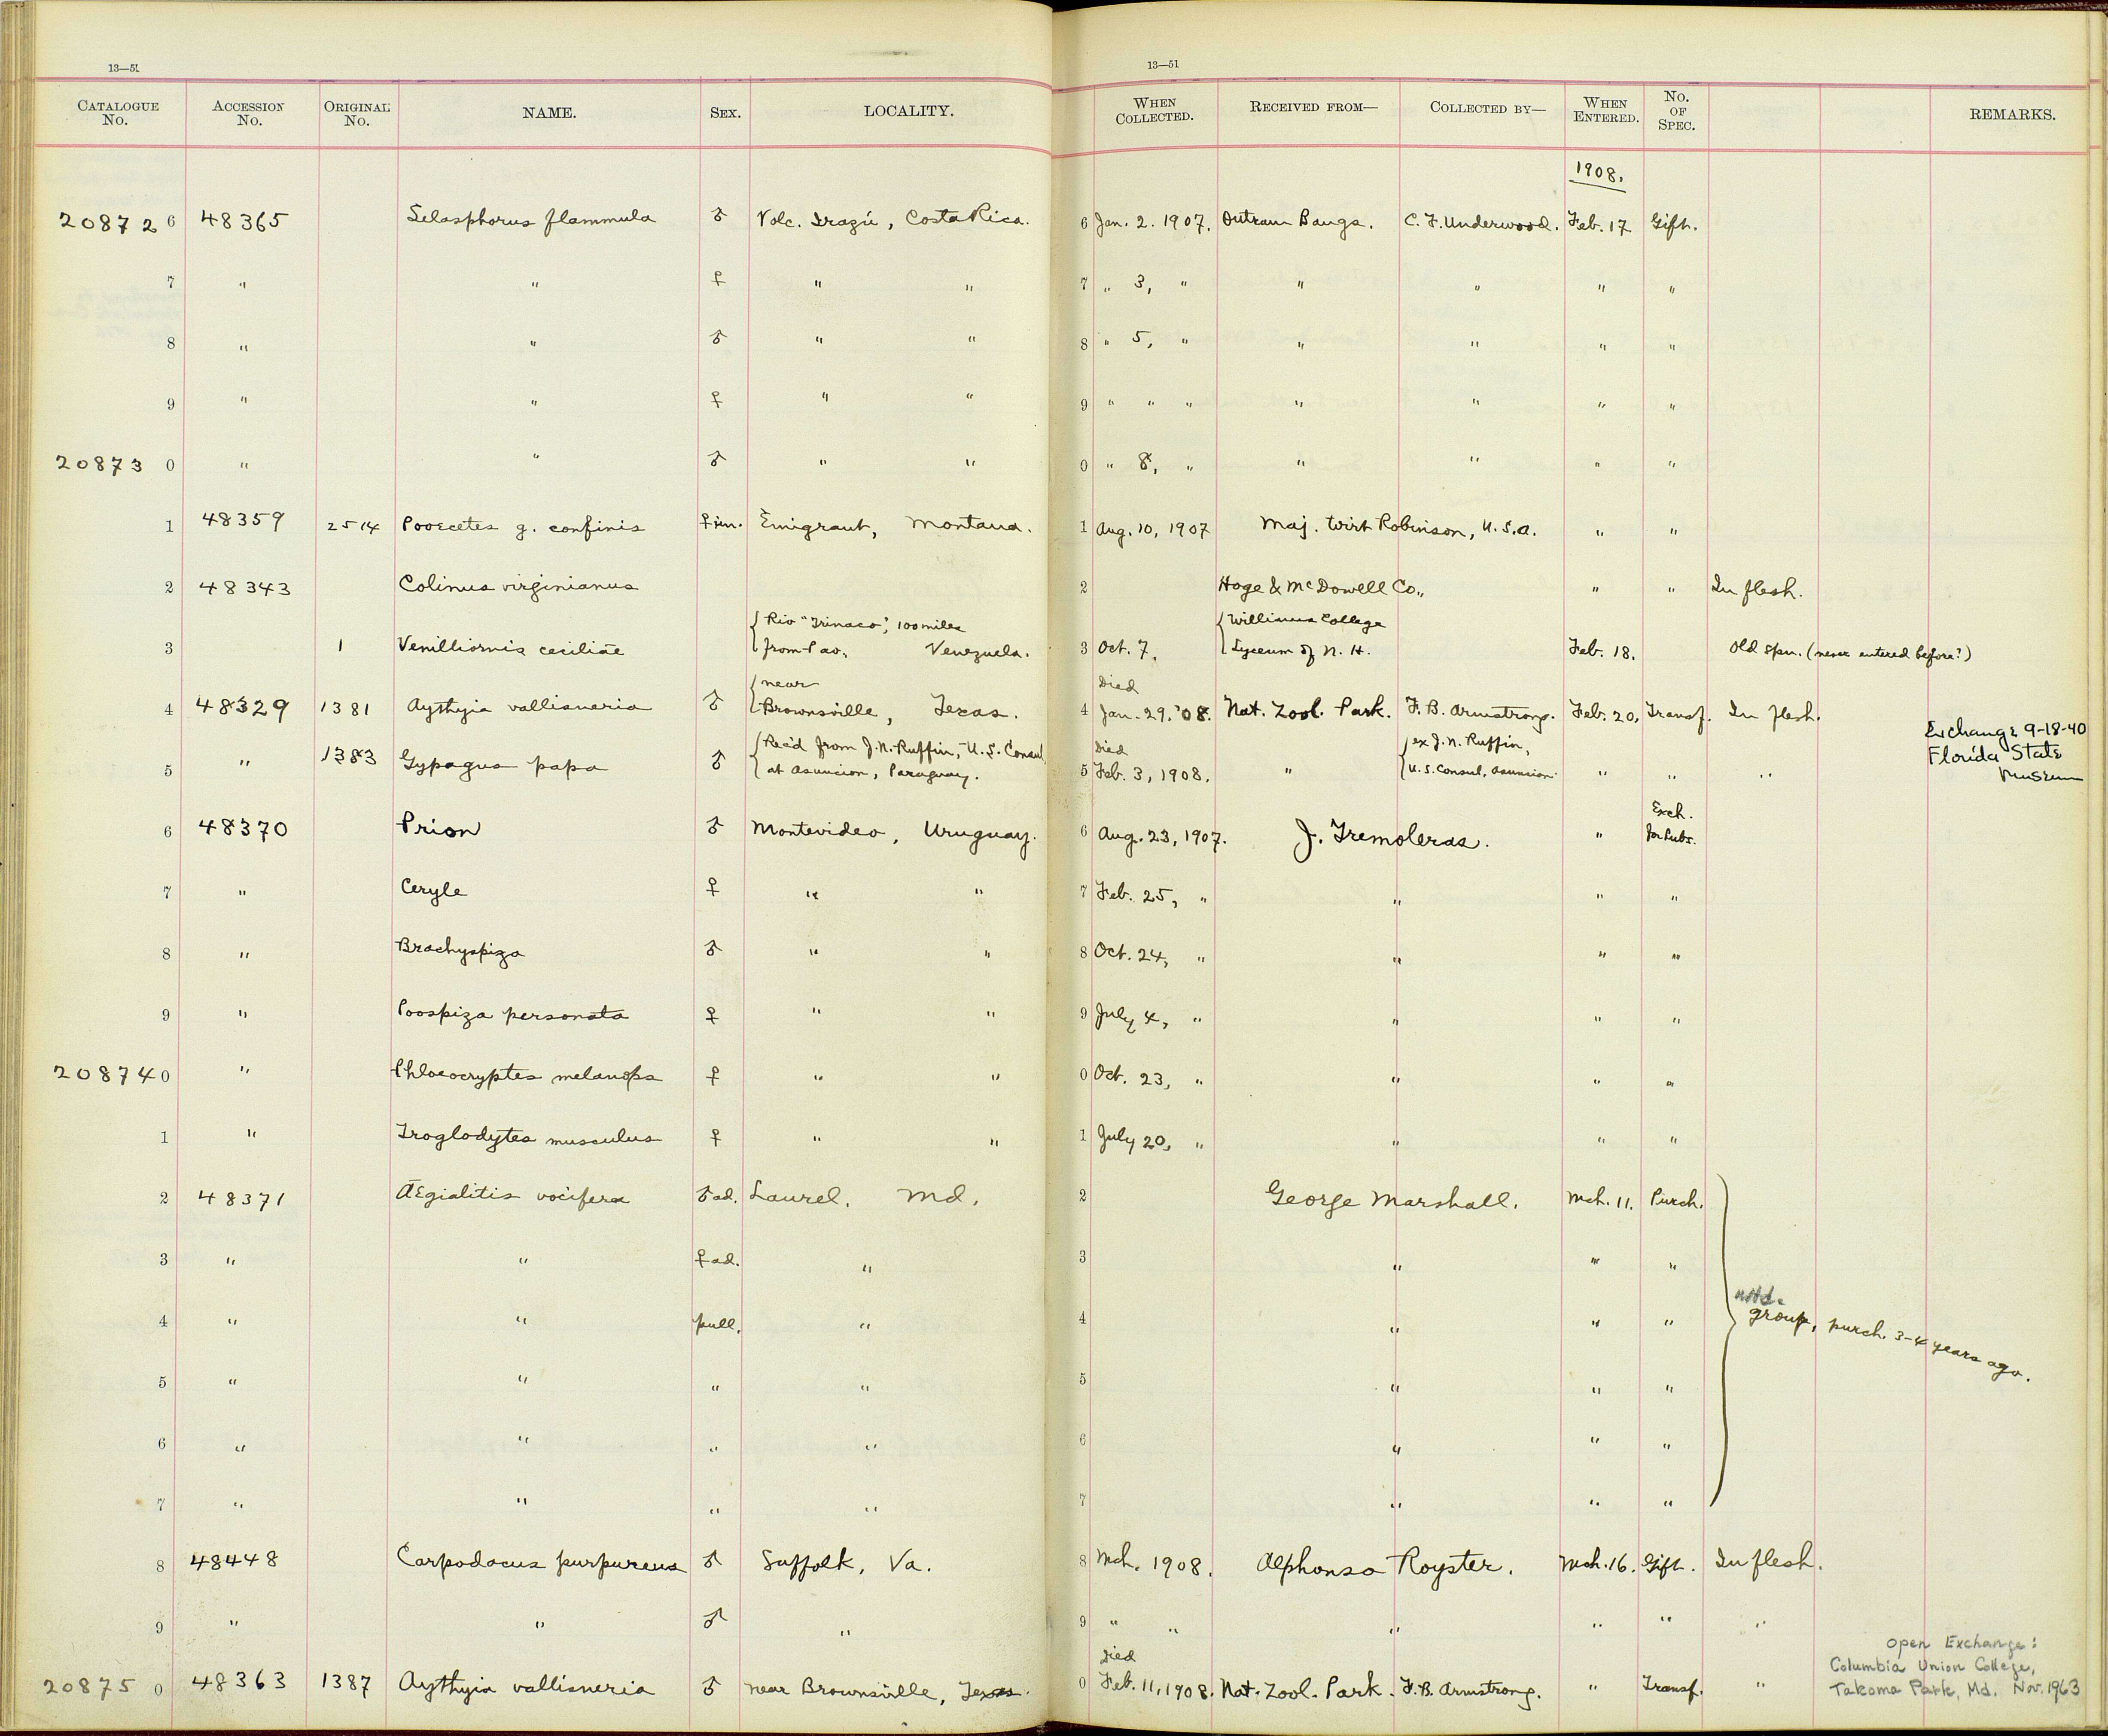 13—51 13—51
CATALOGUE No. ACCESSION No. ORIGINAL No. NAME. SEX. LOCALITY. WHEN COLLECTED. RECEIVED FROM— COLLECTED BY— WHEN ENTERED. No. OF SPEC. REMARKS.
1908.
20872 6 48365 Selasphorus flammula ♂ Volc. Irazú, Costa Rica. 6 Jan. 2. 1907. Outram Bangs. C. F. Underwood. Feb. 17 Gift.
7 " " ♀ " " 7 " 3, " " " " "
8 " " ♂ " " 8 " 5, " " " " "
9 " " ♀ " " 9 " " " " " " "
20873 0 " " ♂ " " 0 " 8, " " " " "
1 48359 2514 Pooecetes g. confinis ♀ im. Emigrant, Montana. 1 Aug. 10, 1907 Maj. Wirt Robinson, U.S.A. " "
2 48343 Colinus virginianus 2 Hoge & McDowell Co., " " In flesh.
{ Rio "Trinaco", 100 miles { Williams College
3 1 Venilliornis ceciliæ from Pao, Venezuela. 3 Oct. 7. Lyceum of N. H. Feb. 18. Old spn. (never entered before?)
{ near Died
4 48329 1381 Aythyia vallisneria ♂ Brownsville, Texas. 4 Jan. 29. '08. Nat. Zool. Park. F. B. Armstrong. Feb. 20, Transf. In flesh.
Exchange 9-18-40
Florida State
Museum
{ Rec'd from J. N. Ruffin, U. S. Consul Died { ex J. N. Ruffin,
5 " 1383 Gypagus papa ♂ at Asuncion, Paraguay. 5 Feb. 3, 1908. " U. S. Consul, Asuncion. " " "
Exch.
6 48370 Prion ♂ Montevideo, Uruguay. 6 Aug. 23, 1907. J. Tremoleras. " for Pubs.
7 " Ceryle ♀ " " 7 Feb. 25, " " " "
8 " Brachyspiza ♂ " " 8 Oct. 24, " " " "
9 " Poospiza personata ♀ " " 9 July 4, " " " "
20874 0 " Phloeocryptes melanops ♀ " " 0 Oct. 23, " " " "
1 " Troglodytes musculus ♀ " " 1 July 20, " " " "
2 48371 Ægialitis vocifera ♂ ad. Laurel. Md. 2 George Marshall. Mch. 11. Purch.
3 " " ♀ ad. " 3 " " "
4 " " pull. " 4 " " "
group, purch. 3-4 years ago.
5 " " " " 5 " " "
6 " " " " 6 " " "
7 " " " " 7 " " "
8 48448 Carpodacus purpureus ♂ Suffolk, Va. 8 Mch. 1908. Alphonso Royster. Mch. 16. Gift. In flesh.
9 " " ♂ " 9 " " " " " "
Died
20875 0 48363 1387 Aythyia vallisneria ♂ near Brownsville, Texas. 0 Feb. 11, 1908. Nat. Zool. Park. F. B. Armstrong. " Transf. "
Open Exchange:
Columbia Union College,
Takoma Park, Md. Nov. 1963